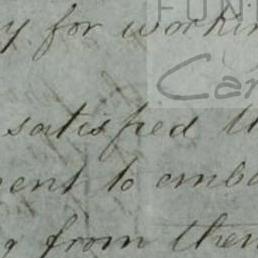 FUN
y for workin
Car
satisfied th
ent to emba
g from them